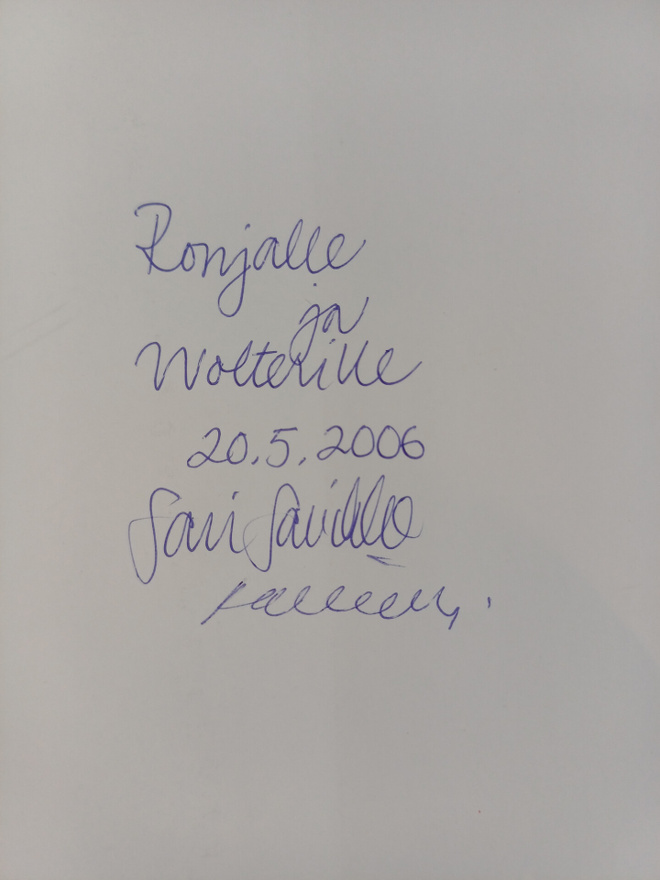 Ronjalle
ja
Wolterille
20.5.2006
Sari